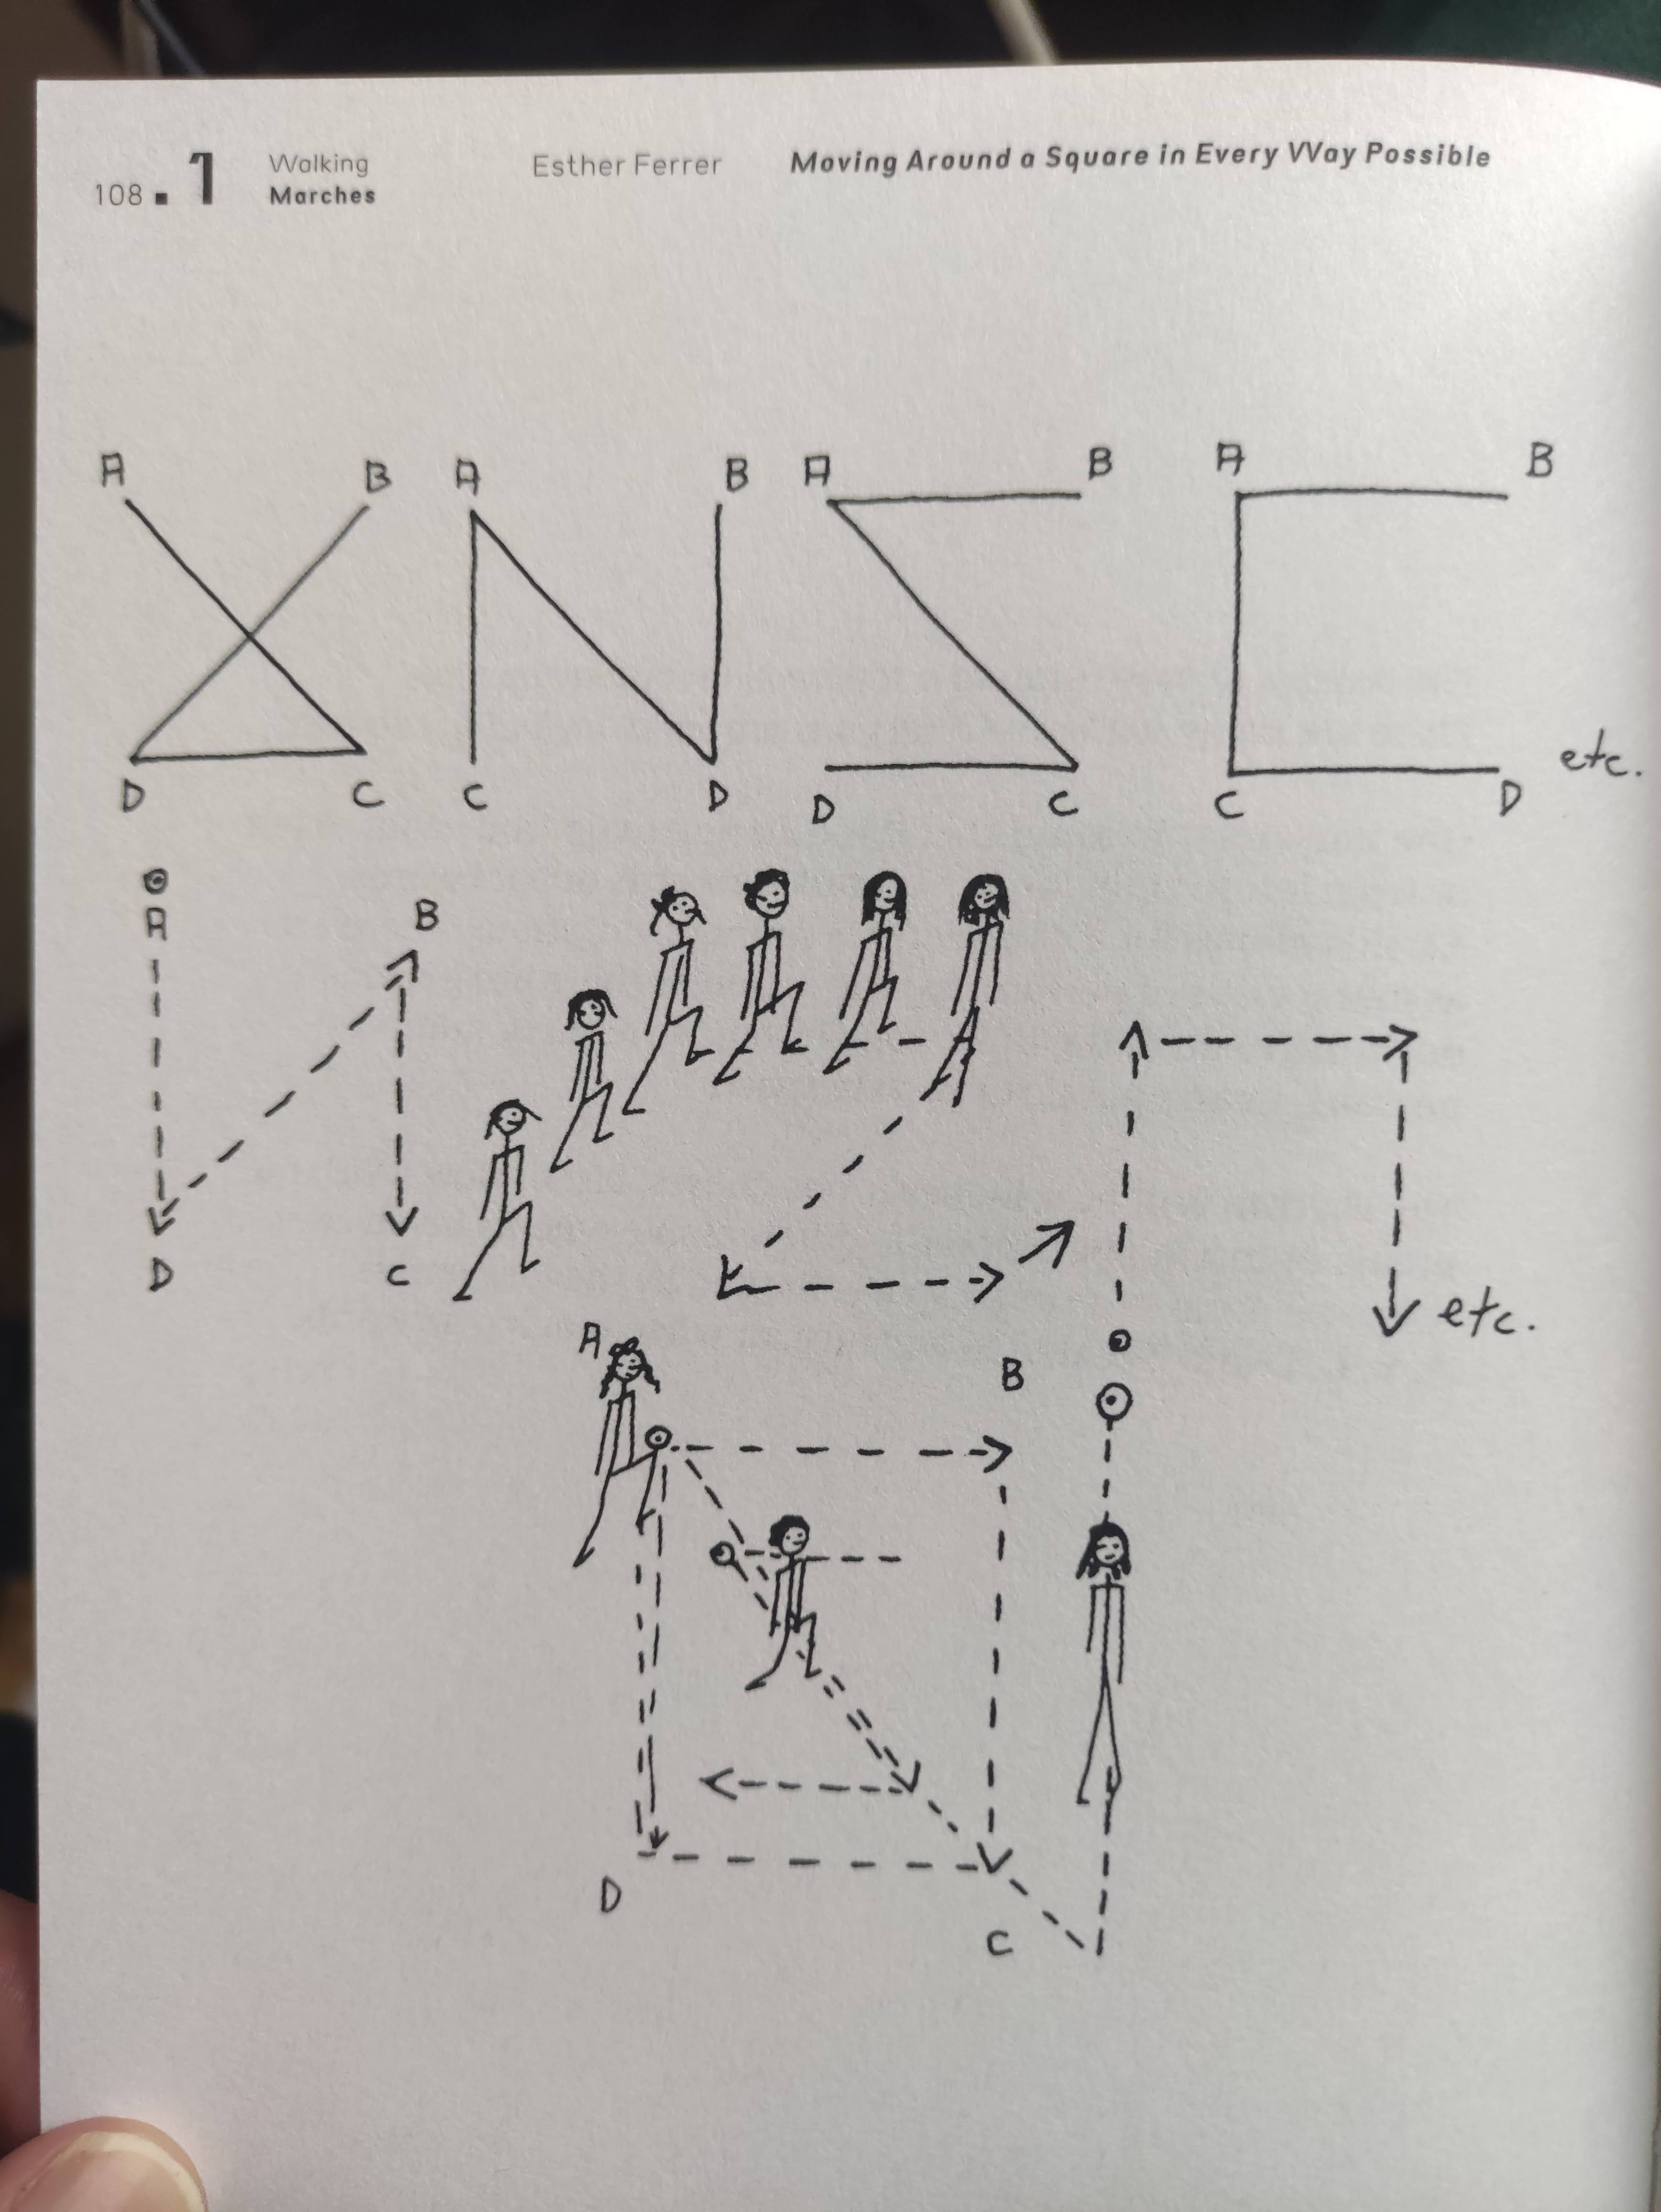 108 . 1 Walking Marches Esther Ferrer Moving Around a Square in Every Way Possible
A B A B A B A B
D C C D D C C D etc.
A B
D C
etc.
A B
D C